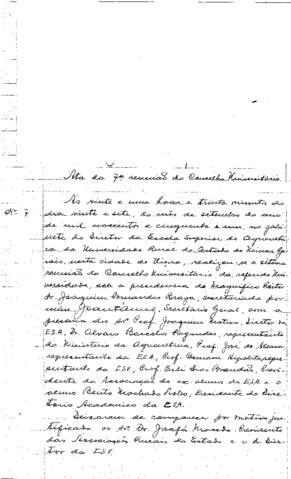 Ata da 7ª reunião do Conselho Universitário.
Nº 7
Às vinte e uma horas e trinta minutos do
dia vinte e sete, do mês de setembro do ano
de mil novecentos e cinquenta e um, no gabi-
nete do Diretor da Escola Superior de Agricultu-
ra da Universidade Rural do Estado de Minas Ge-
rais, nesta cidade de Viçosa, realizou-se a sétima
reunião do Conselho Universitário da referida Uni-
versidade, sob a presidência do Magnífico Reitor
Dr. Joaquim Fernandes Braga, secretariada por
mim, Secretário Geral, com a
presença dos srs. Prof. Joaquim Matoso, Diretor da
ESA, Dr. Alvaro Barcelos Fagundes, representante
do Ministério da Agricultura, Prof. José de Alencar,
representante da ESA, Prof. Osmane Hipólito, repre-
sentante da ESV, Prof. Dias Brandão, Presi-
dente da Associação de ex-alunos da ESA e o
aluno Bento Machado, Presidente do Dire-
tório Acadêmico da ESA.
Deixaram de comparecer por motivo jus-
tificado os srs. Dr. Josafá Macedo, Presidente
das Associações Rurais do Estado e o dr. Dire-
tor da ESV.